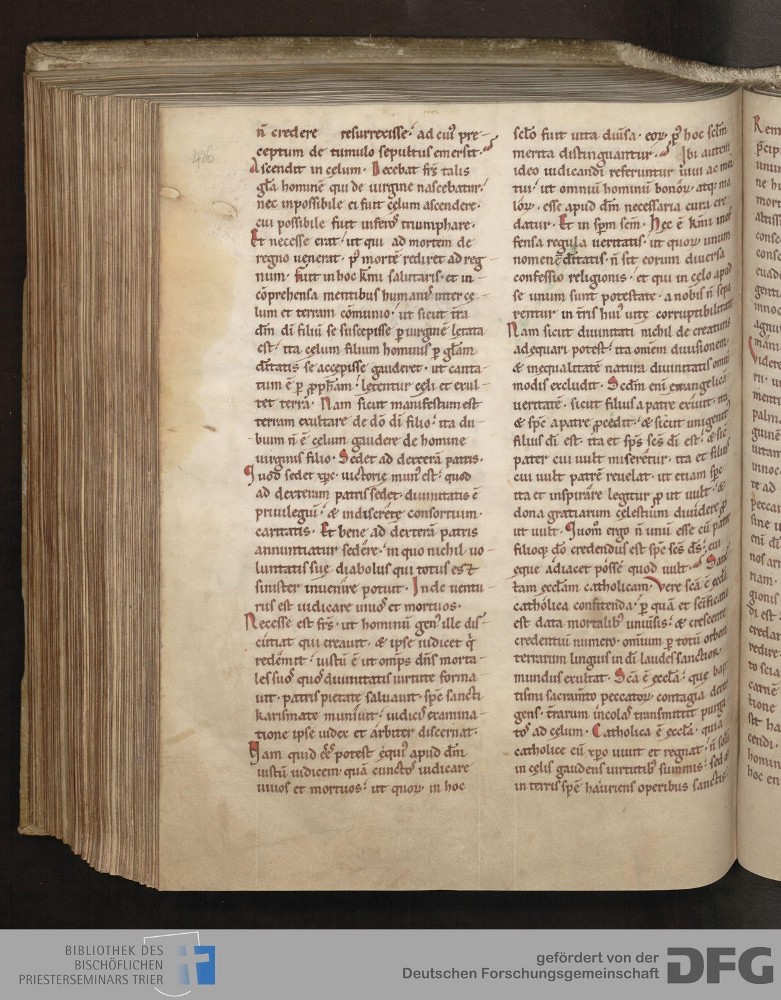 426
n̄ credere resurrexisse· ad cui᾽ pre-
ceptum de tumulo sepultus emersit·
Ascendit in celum· Decebat frs̄ talis
gl̄a hominē qui de uirgine nascebatur·
nec inpossibile ei fuit celum ascendere·
cui possibile fuit inferos triumphare·
Et necesse erat· ut qui ad mortem de
regno uenerat· p᾽ mortē rediret ad reg-
num· fuit in hoc
cōprehensa mentibus humanis inter ce-
lum et terram cōmunio· ut sicut t̄ra
dn̄m dī filiū se suscepisse ꝑ uirginē letata
est· ita celum filium hominis ꝑ gl̄am
diuitatis se accepisse gauderet· ut canta-
tum ē ꝑ ꝓph̄am· letentur celi et exul-
tet terra· Nam sicut manifestum est
terram exultare de dō dī filio· ita du-
bium n̄ ē celum gaudere de homine
uirginis filio· Sedet ad dexterā patris·
Quod sedet xp̄c· uictorie mun᾽ est· quod
ad dexteram patris sedet· diuinitatis ē
priuilegiū· & indiscrete consortium
caritatis· Et bene ad dexterā patris
annuntiatur sedere· in quo nichil uo-
luntatis sue diabolus qui totus est
sinister inuenire potuit· Inde uentu-
rus est iudicare uiuos et mortuos·
Necesse est frs̄· ut hominū gen᾽ ille dis-
cutiat qui creauit· & ipse iudicet q̄
redemit· iustū ē ut omp̄s dn̄s morta-
les suos quos diuinitatis uirtute forma-
uit· patris pietate saluauit· spē sancti
karismate muniuit· iudicii examina-
tione ipse iudex et arbiter discernat·
Nam quid ee᾽ potest equi᾽ apud dn̄m
iustū iudicem· quā cunctos iudicare
uiuos et mortuos· ut quoꝝ in hoc
scl̄o fuit uita diuisa· eoꝝ p᾽ hoc scl̄m
merita distinguantur· Ibi autem
ideo iudicandi referuntur uiui ac mor-
tui· ut omniū hominū bonoꝝ atqꝫ ma-
loꝝ· esse apud dn̄m necessaria cura cre-
datur· Et in sp̄m scm̄· Hec ē
fensa regula ueritatis· ut quoꝝ unum
nomen ē diuitatis· n̄ sit eorum diuersa
confessio religionis· et qui in celo apud
se unum sunt potestate· a nobis n̄ sepa-
rentur in t̄ris hui᾽ uite corruptibilitate
Nam sicut diuinitati nichil de creaturis
adequari potest· ita omnem diuisionem
& inequalitatē natura diuinitatis omni-
modis excludit· Scdm̄ enī ewangelicā
ueritatē· sicut filius a patre exiuit· ita
& spc̄ a patre ꝓcedit· & sicut unigenit᾽
filius dī est· ita et sps̄ ses̄ dī est· & sic
pater cui uult miseretur· ita et filius
cui uult patrē reuelat· ut etiam spc̄
ita et inspirare legitur ꝓ ut uult· &
dona gratiarum celestium diuidere ꝓ
ut uult· Quom̄ ergo n̄ unū esse cū patre
filioqꝫ dō credendus est spc̄ ses̄ ds̄· cui
eque adiacet posse quod uult· Sanc-
tam eccl̄am catholicam· Vere scā ē eccl̄a
catholica confitenda· ꝑ quā et scificatio
est data mortalib᾽ uniuersis· & crescente
credentiū numero· omnium ꝑ totū orbem
terrarum linguis in dī laudes sanctoꝝ
mundus exultat· Scā ē eccl̄a· que bap-
tismi sacram̄to peccatoꝝ contagia deter-
gens· t̄rarum incolas transmittit purga-
tos ad celum· Catholica ē eccl̄a· quia
catholice cū xp̄o uiuit et regnat· n̄ solū
in celis gaudens uirtutib᾽ summis· sed &
in terris spē hauriens operibus sanctis
BIBLIOTHEK DES
BISCHÖFLICHEN
PRIESTERSEMINARS TRIER
gefördert von der
Deutschen Forschungsgemeinschaft
DFG